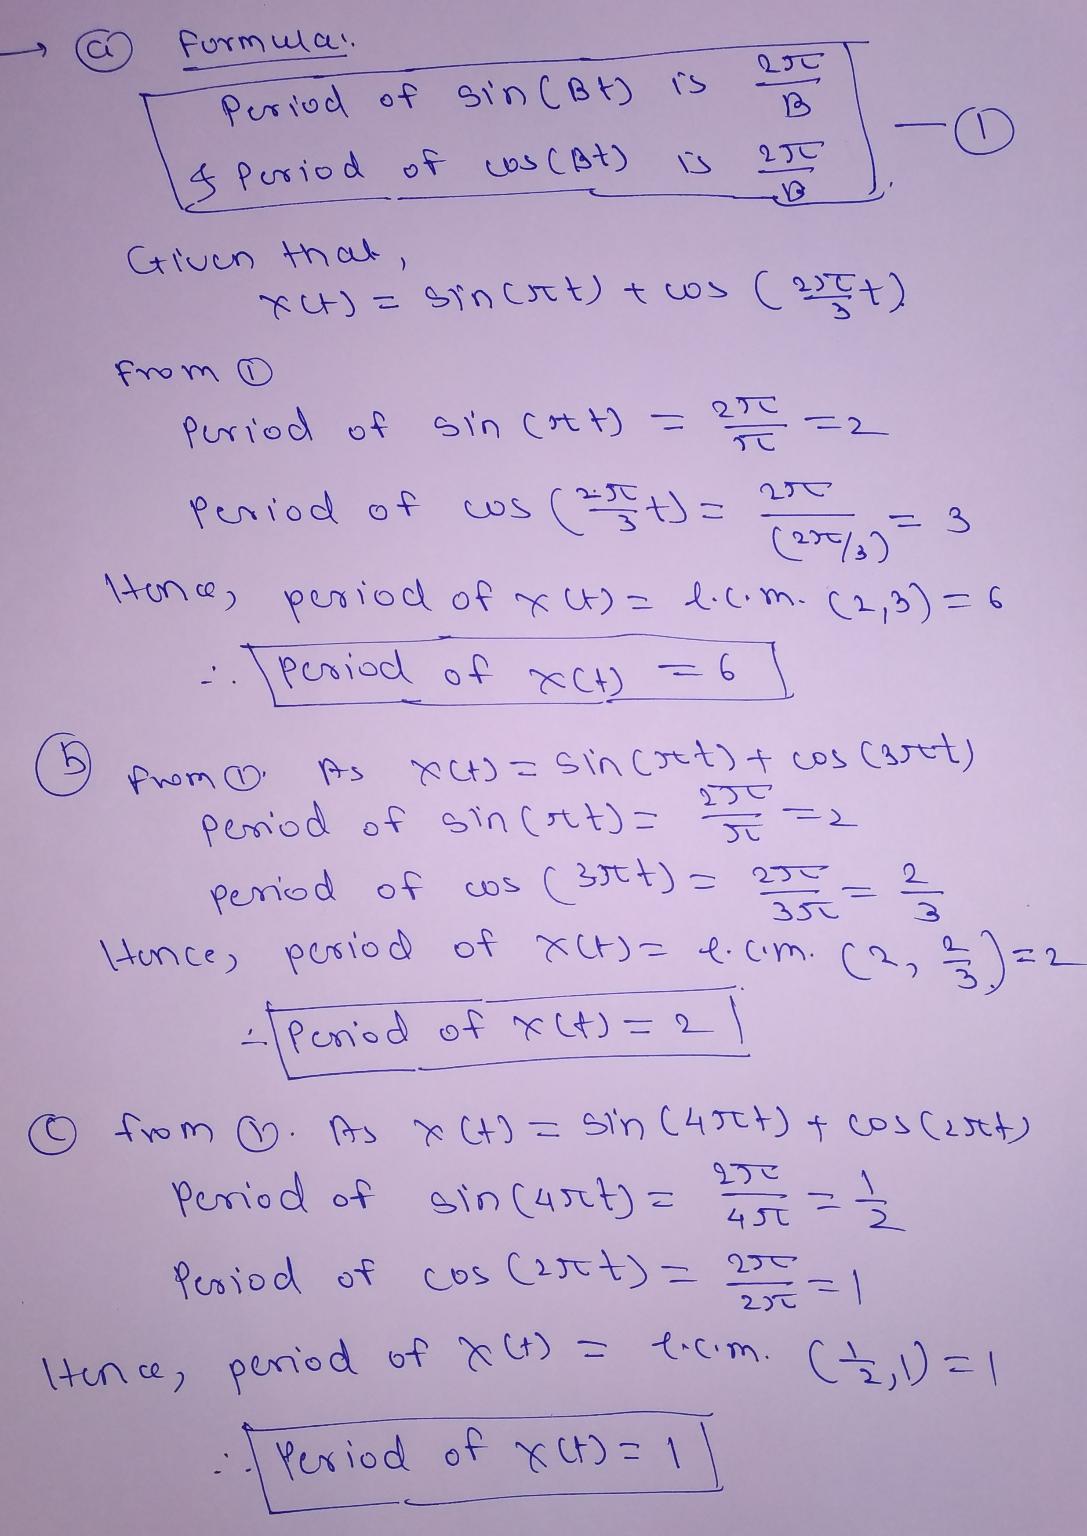 → ⓐ Formula:
Period of sin(Bt) is 2π/B
& Period of cos(Bt) is 2π/B — ①
Given that,
x(t) = sin(πt) + cos(2π/3 t)
From ①
Period of sin(πt) = 2π/π = 2
Period of cos(2π/3 t) = 2π/(2π/3) = 3
Hence, period of x(t) = l.c.m. (2,3) = 6
∴ Period of x(t) = 6
ⓑ from ①. As x(t) = sin(πt) + cos(3πt)
Period of sin(πt) = 2π/π = 2
period of cos(3πt) = 2π/3π = 2/3
Hence, period of x(t) = l.c.m. (2, 2/3) = 2
∴ Period of x(t) = 2
ⓒ from ①. As x(t) = sin(4πt) + cos(2πt)
Period of sin(4πt) = 2π/4π = 1/2
Period of cos(2πt) = 2π/2π = 1
Hence, period of x(t) = l.c.m. (1/2, 1) = 1
∴ Period of x(t) = 1